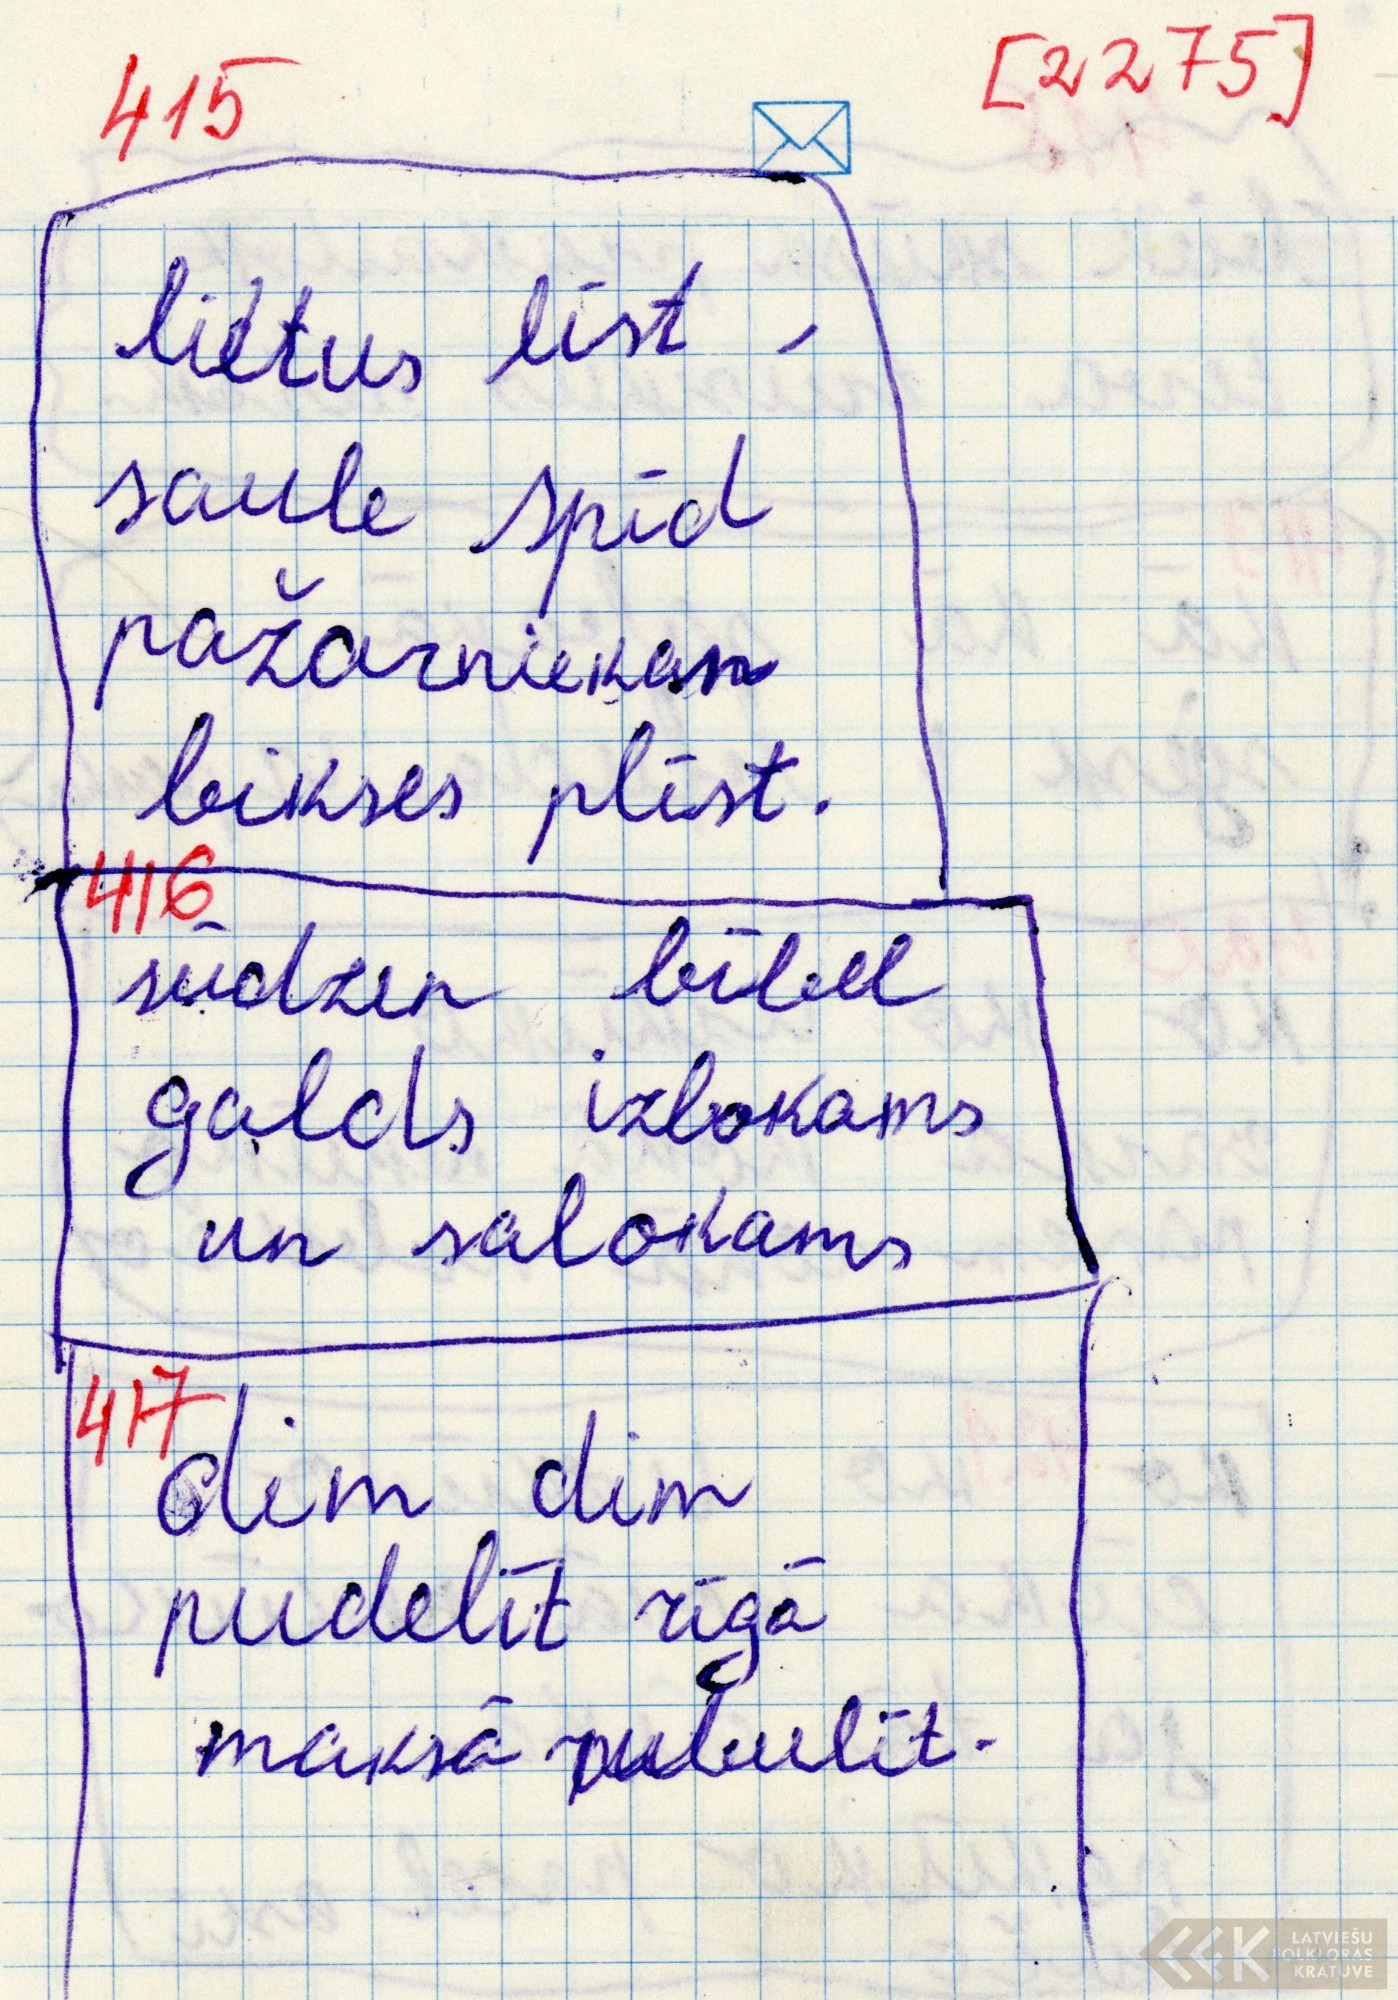 415
[2275]
lietus līst,
saule spīd
pažarniekam
bikses plīst.
416
sūdzen bībel
galds izlokams
un salokams
417
dim dim
pudelīt rīgā
maksā rubulīt.
LATVIEŠU
FOLKLORAS
KRĀTUVE